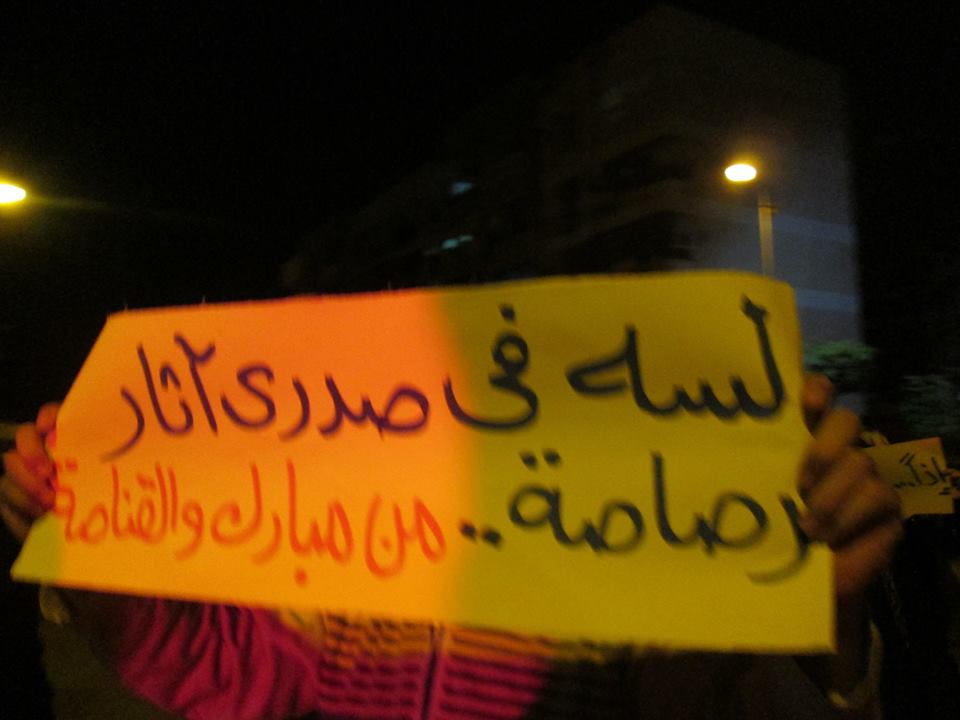 لسه فى صدرى آثار
رصاصة .. من مبارك والقناصة